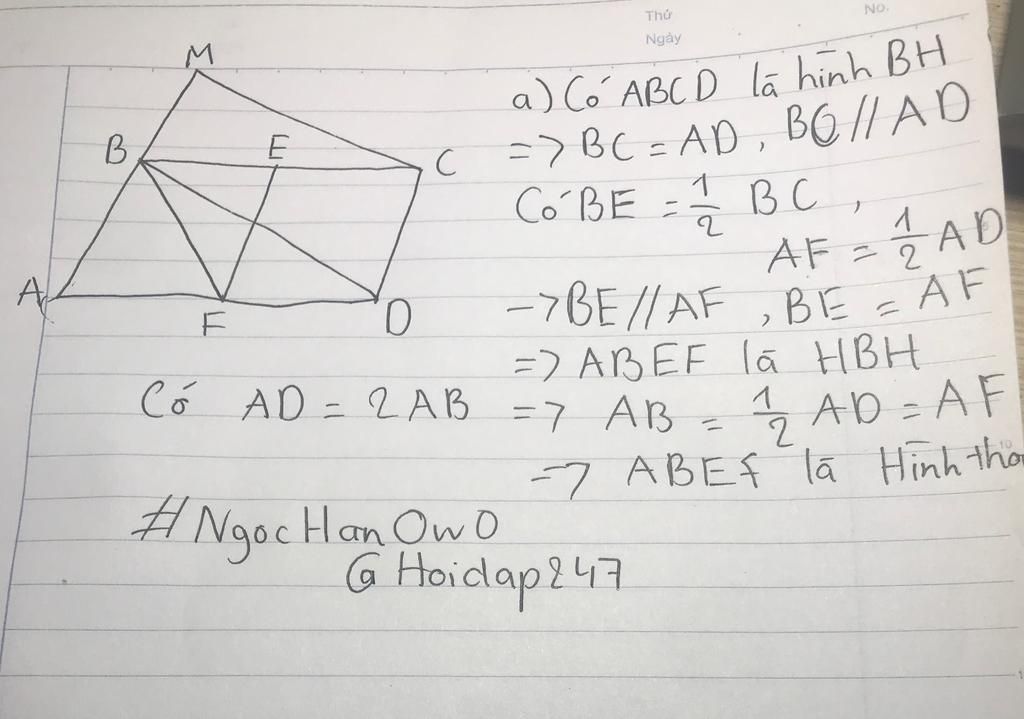 Thứ
Ngày
No.
M
B
E
C
A
F
D
a) Có ABCD là hình BH
=> BC = AD, BC // AD
Có BE = 1/2 BC,
AF = 1/2 AD
-> BE // AF, BE = AF
=> ABEF là HBH
Có AD = 2AB => AB = 1/2 AD = AF
=> ABEF là Hình tho
#NgocHanOwO
@Hoidap247